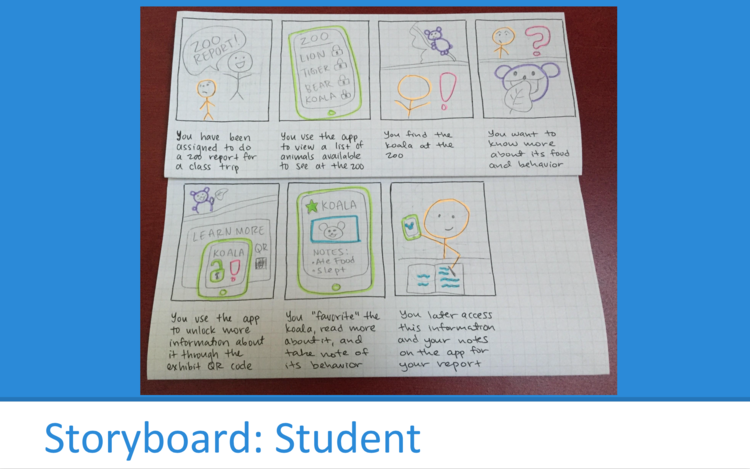 ZOO
REPORT!
You have been
assigned to do
a zoo report for
a class trip
ZOO
LION
TIGER
BEAR
KOALA
You use the app
to view a list of
animals available
to see at the zoo
!
You find the
koala at the
zoo
?
You want to
know more
about its food
and behavior
LEARN MORE
KOALA
!
QR
You use the app
to unlock more
information about
it through the
exhibit QR code
KOALA
NOTES:
• Ate Food
• Slept
You "favorite" the
koala, read more
about it, and
take note of
its behavior
You later access
this information
and your notes
on the app for
your report
Storyboard: Student